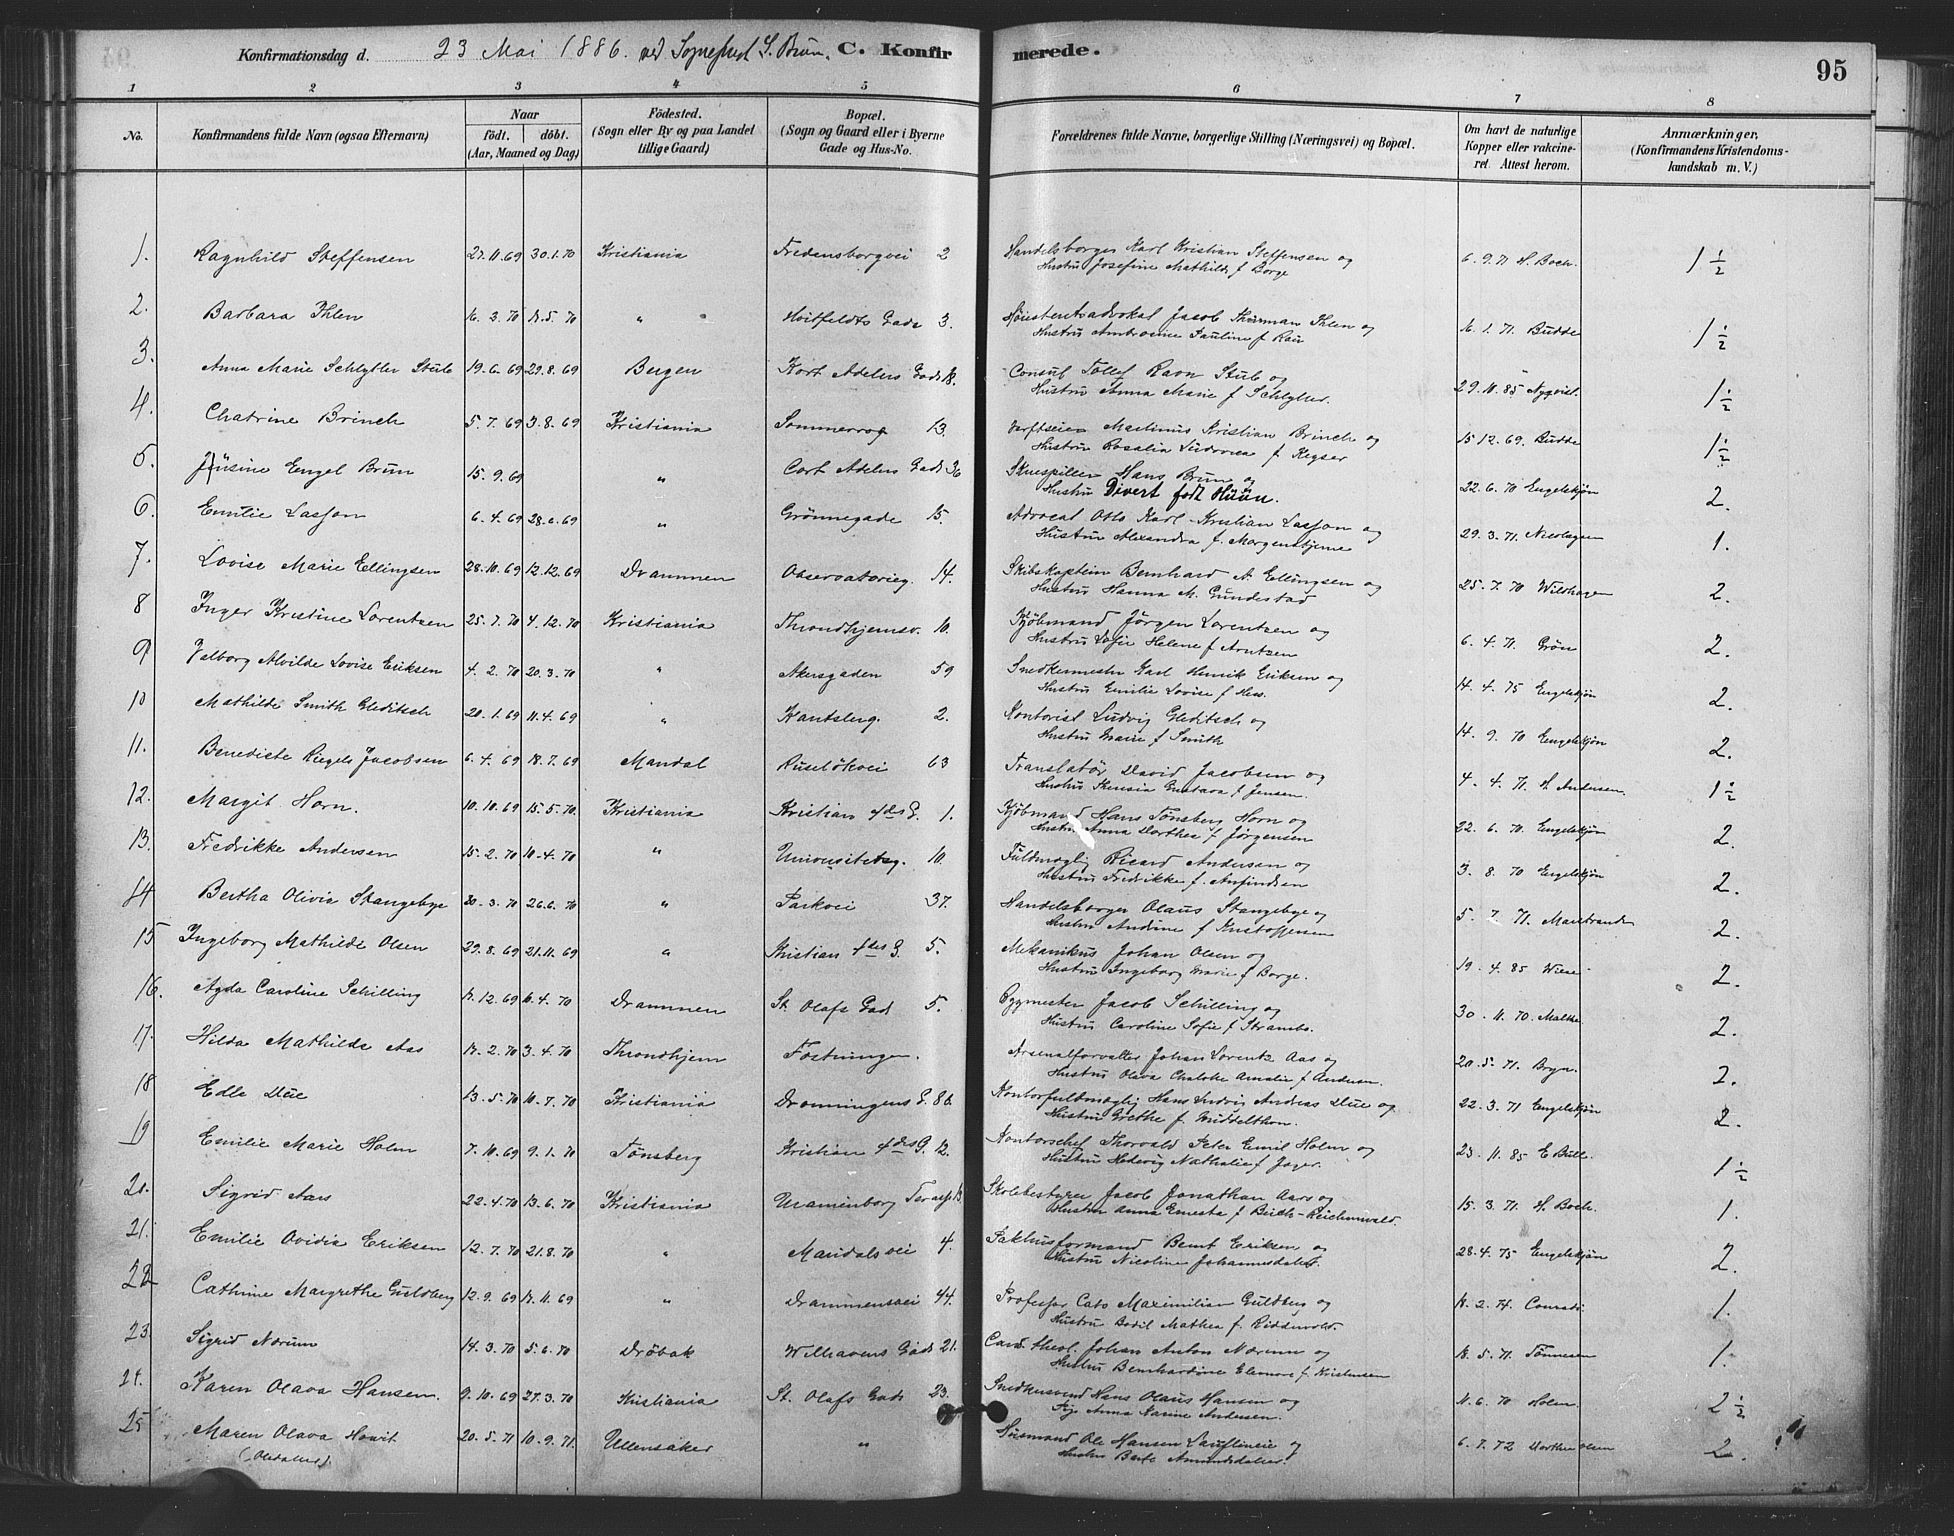 Konfirmationsdag d. 23 Mai 1886. ved Sognepræst S. Brun. C. Konfirmerede. 95
1 2 3 4 5 6 7 8
No. Konfirmandens fulde Navn (ogsaa Efternavn) Naar født. døbt. (Aar, Maaned og Dag) Fødested. (Sogn eller By og paa Landet tillige Gaard) Bopæl. (Sogn og Gaard eller i Byerne Gade og Hus-No. Forældrenes fulde Navne, borgerlige Stilling (Næringsvei) og Bopæl. Om havt de naturlige Kopper eller vakcineret. Attest herom. Anmærkninger, (Konfirmandens Kristendomskundskab m. V.)
1. Ragnhild Steffensen 27.11.69 30.1.70 Kristiania Fredensborgvei 2 Handelsborger Karl Kristian Steffensen og 6.9.71 H. Boch. 1 1/2
Hustru Josefine Mathilde f Borge
2. Barbara Ihlen 16.3.70 " Hvitfeldts Gade 3. Høiesteretsadvokat Jacob Thurman Ihlen og 16.1.71. Budde 1 1/2
Hustru Ambrosine Pauline f
3. Anna Marie Schlytter Stub 19.6.69 29.8.69 Bergen Kort Adelers Gade 18. Consul Tollef Ravn Stub og 29.11.85 Nyqvist. 1 1/2
Hustru Anna Marie f Schlytter.
4. Chatrine Brinch 5.7.69 3.8.69 Kristiania Sommerrog 13. Værftseier Martinus Kristian Brinch og 15 12.69. Budde 1 1/2
Hustru Rosalia Ludovica f Keyser
5. Jusine Engel Brun 15.9.69 " Cort Adelers Gade 36 Skuespiller Hans Brun og 22.6.70 Engelskjøn 2.
Hustru Divert født Huun.
6. Emilie Lasson 6.4.69 28.6.69 " Grønnegade 15. Advocat Otto Karl Kristian Lasson og 29.3.71. Nicolaysen 1.
Hustru Alexandra f. Morgenstjerne
7. Lovise Marie Ellingsen 28.10.69 12.12.69 Drammen Observatorieg. 14. Skibskaptein Bernhard A. Ellingsen og 25.7.70 Wildhagen 2.
Hustru Hanna M. Gundestad
8 Inger Kristine Lorentzen 25.7.70 4.12.70 Kristiania Throndhjemsv. 10. Kjøbmand Jørgen Lorentzen og 6.4.71. Grøn 2.
Hustru Sofie Helene f Arntzen
9 Valborg Alvilde Lovise Eriksen 4.2.70 20.3.70 " Akersgaden 59 Snedkermester Karl Henrik Eriksen og 14.4.75 Engelskjøn 2.
Hustru Emilie Lovise f Hess.
10 Mathilde Smith Gleditsch 20.1.69 11.4.69 " 2. Kontorist Ludvig Gleditsch og 14.9.70 Engelskjøn 2.
Hustru Marie f Smith
11. Benedicte Riegels Jacobsen 6.4.69 18.7.69 Mandal Ruseløkvei 63 Translatør David Jacobsen og 4.4.71. A. Andersen. 1 1/2
Hustru Gustava f Jensen.
12. Margit Horn. 10.10.69 15.5.70. Kristiania Kristian 4des G. 1. Kjøbmand Hans Tønsberg Horn og 22.6.70. Engelskjøn 2.
Hustru Anna Dorthea f Jørgensen
13. Fredrikke Andersen 15.2.70 10.4.70 " Universitetsg. 10. Fuldmægtig Ricard Andersen og 3.8.70 Engelskjøn 2.
Hustru Fredrikke f. Anfindsen
14 Bertha Olivia Stangebye 20.3.70 26.6.70 " Parkvei 37. Handelsborger Olaus Stangebye og 5.7.71. Marstrand 2.
Hustru Andrine f Kristoffersen
15 Ingeborg Mathilde Olsen 29.8.69 21.11.69 " Kristian 4des G. 5. Mekanikus Johan Olsen og 19.4.85 Wiese 2.
Hustru Ingeborg Marie f Borge.
16. Agda Caroline Schilling 17.12.69 6.4.70 Drammen St. Olafs Gade 5. Bygmester Jacob Schilling og 30.11.70. Malthe 2.
Hustru Caroline Sofie f Strambo.
17. Hilda Mathilde Aas 17.2.70 3.4.70 Throndhjem Fæstningen. Arsenalforvalter Johan Lorentz Aas og 20.5.71. Bryn. 2.
Hustru Olava Amalie f Andersen.
18 Edle Due 13.5.70 10.7.70 Kristiania Dronningens G. 86. Kontorfuldmægtig Hans Ludvig Andreas Due og 22.3.71 Engelskjøn 2.
Hustru Grethe f. Middelthon.
19 Emilie Marie Holm 7.10.69 9.1.70 Tønsberg Kristian 4des G. 12. Kontorchef Thorvald Peter Emil Holm og 23.11.85 E Bull. 1 1/2
Hustru Hedevig Nathalie f Jager.
20. Sigrid Aars 22.4.70 13.6.70 Kristiania Uranienborg Terasse 13 Skolebestyrer Jacob Jonathan Aars og 15.3.71 H. Boch. 1.
Hustru Anna Ernesta f Birch-Reichenwald.
21. Emilie Ovidia Eriksen 12.7.70 21.8.70 " Maridalsvei 4. Pakhusformand Bernt Eriksen og 28.4.75 Engelskjøn 2.
Hustru Nicoline Johannesdatter.
22 Cathrine Margrethe Guldberg 12.9.69 17.11.69 " Drammensvei 44. Professor Cato Maximilian Guldberg og 18.2.74. Conradi 1.
Hustru Bodil Mathea f. Riddervold.
23. Sigrid Nærum 14.3.70 5.6.70 Drøbak Welhavens Gade 21. Cand. theol. Johan Anton Nærum og 18.5.71. Tønnesen 1.
Hustru Bernhardine Elenore f Kristensen
24. Karen Olava Hansen. 9.10.69 27.3.70 Kristiania St. Olafs Gade 23. Snedkersvend Hans Olaus Hansen og 11.6.70 Holm. 2 1/2
Pige Anna Karine Andersen.
25 Maren Olava Hovit 20.5.71 10.9.71. Ullensaker " Husmand Ole Hansen og 6.7.72 Dorthe Olsen 2.
(Olsdatter) Hustru Berte Amundsdatter.